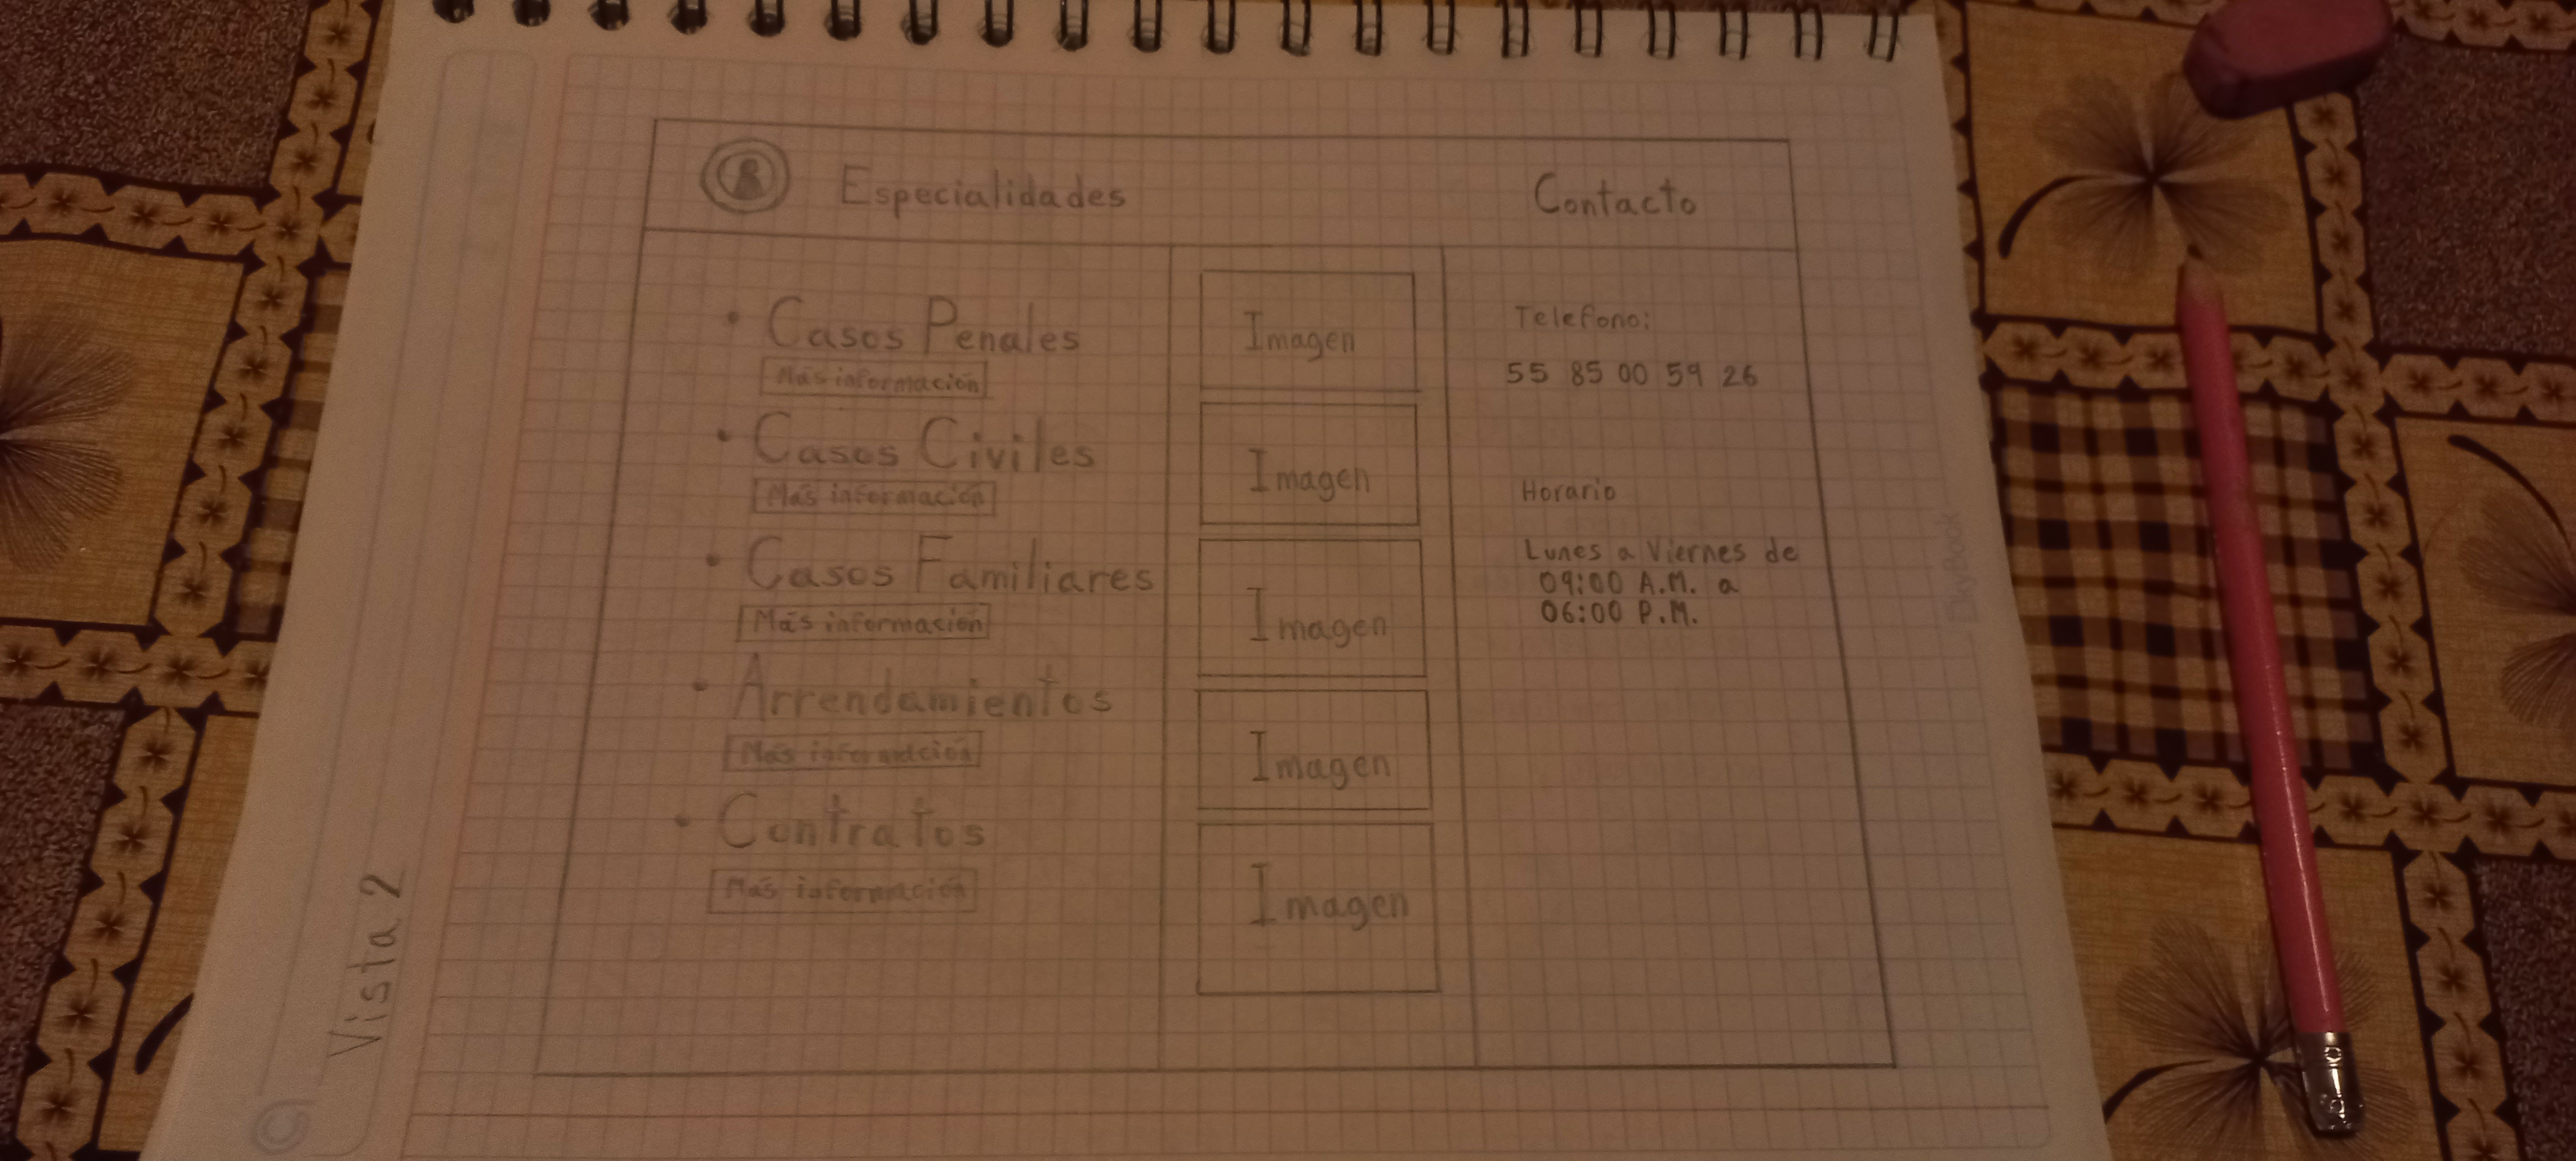 Especialidades
Contacto
• Casos Penales
Más información
• Casos Civiles
Más información
• Casos Familiares
Más información
• Arrendamientos
Más información
• Contratos
Más información
Imagen
Imagen
Imagen
Imagen
Imagen
Telefono:
55 85 00 59 26
Horario
Lunes a Viernes de
09:00 A.M. a
06:00 P.M.
Vista 2